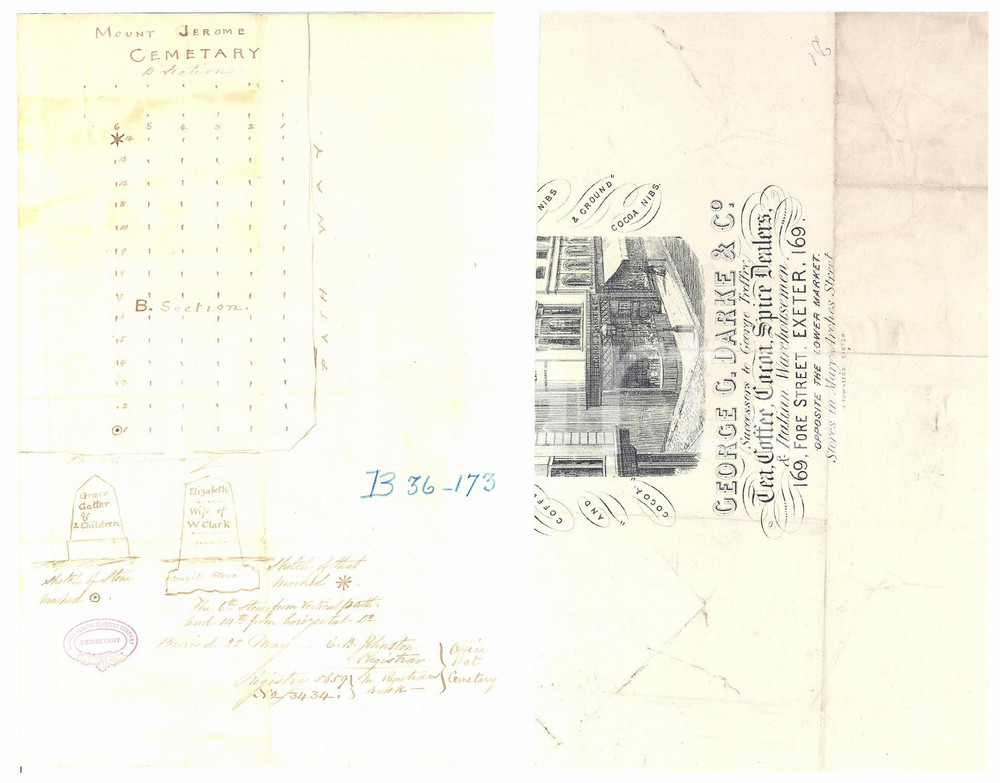 MOUNT JEROME
CEMETARY
B Section
6 5 4 3 2 1
14
13
12
11
10
9
18
17
B. Section.
16
15
14
13
2
1
PATH WAY
B 36-173
Grace
Gatter
&
2 Children
Elizabeth
Wife of
W Clark
Sketch of Stone
marked ⊙.
Sketch of that
marked ✳.
The 6th stone from vertical path
and 14th from horizontal Do
SECRETARY
Buried 22 May — C. B. Johnston
Registrar
Office
at
Cemetery
Registry 5659
Do 3434.
In Registrars
Book
NIBS
& GROUND"
COCOA NIBS.
GEORGE G. DARKE & Co.
Successors to George Trelfry,
Tea, Coffee, Cocoa, Spice Dealers,
& Italian Warehousemen,
169, FORE STREET, EXETER, 169.
OPPOSITE THE LOWER MARKET.
Stores in Mary Arches Street
COFFEE
AND
COCOA